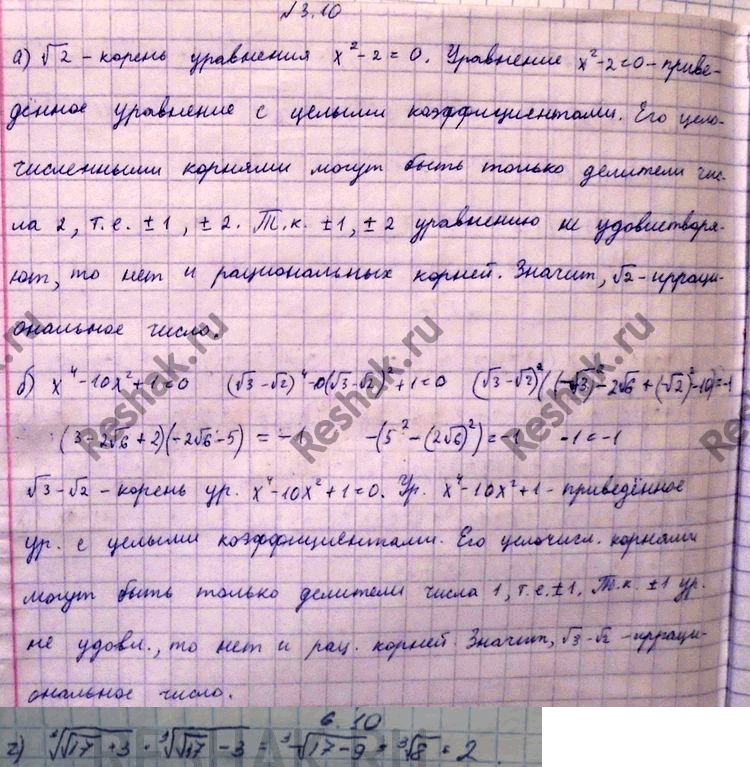 №3.10
а) √2 – корень уравнения x²-2=0. Уравнение x²-2=0 – приве-
дённое уравнение с целыми коэффициентами. Его цело-
численными корнями могут быть только делители чис-
ла 2, т.е. ±1, ±2. Т.к. ±1, ±2 уравнению не удовлетворя-
ют, то нет и рациональных корней. Значит, √2 – ирраци-
ональное число.
б) x⁴-10x²+1=0 (√3-√2)⁴-0(√3-√2)²+1=0 (√3-√2)²((-√3)²-2√6+(-√2)²-10)=-1
(3-2√6+2)(-2√6-5) = -1 -(5²-(2√6)²)=-1 -1=-1
√3-√2 – корень ур. x⁴-10x²+1=0. Ур. x⁴-10x²+1 – приведённое
ур. с целыми коэффициентами. Его целочисл. корнями
могут быть только делители числа 1, т.е. ±1. Т.к. ±1 ур.
не удовл., то нет и рац. корней. Значит, √3-√2 – ирраци-
ональное число.
6.10
г) ³√(√17+3) · ³√(√17-3) = ³√(17-9) = ³√8 = 2.
Reshak.ru
Reshak.ru
Reshak.ru
RESHAK.RU